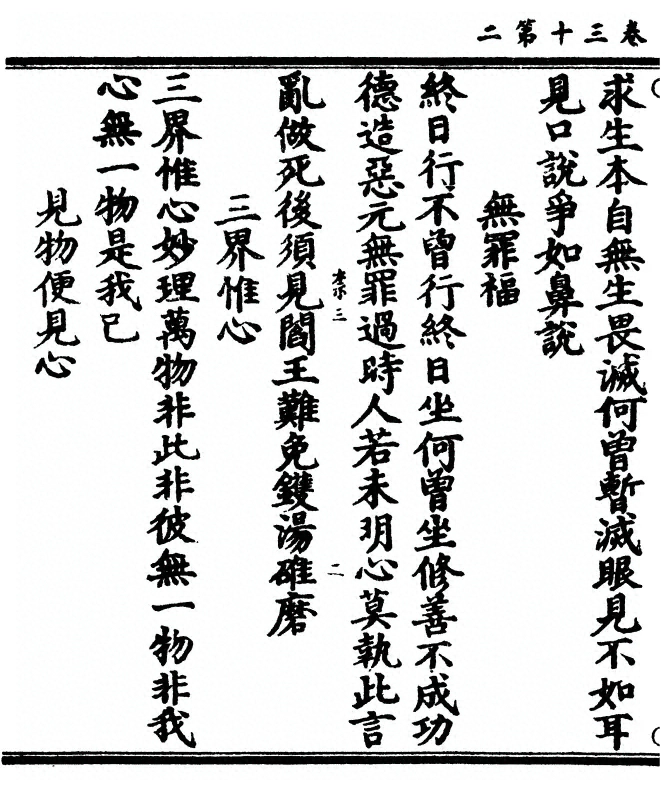 卷三十第二
求生本自無生畏滅何曾暫滅眼見不如耳
見口說爭如鼻說
無罪福
終日行不曾行終日坐何曾坐修善不成功
德造惡元無罪過時人若未明心莫執此言
亂做死後須見閻王難免鑊湯碓磨
三界惟心
三界惟心妙理萬物非此非彼無一物非我
心無一物是我己
見物便見心